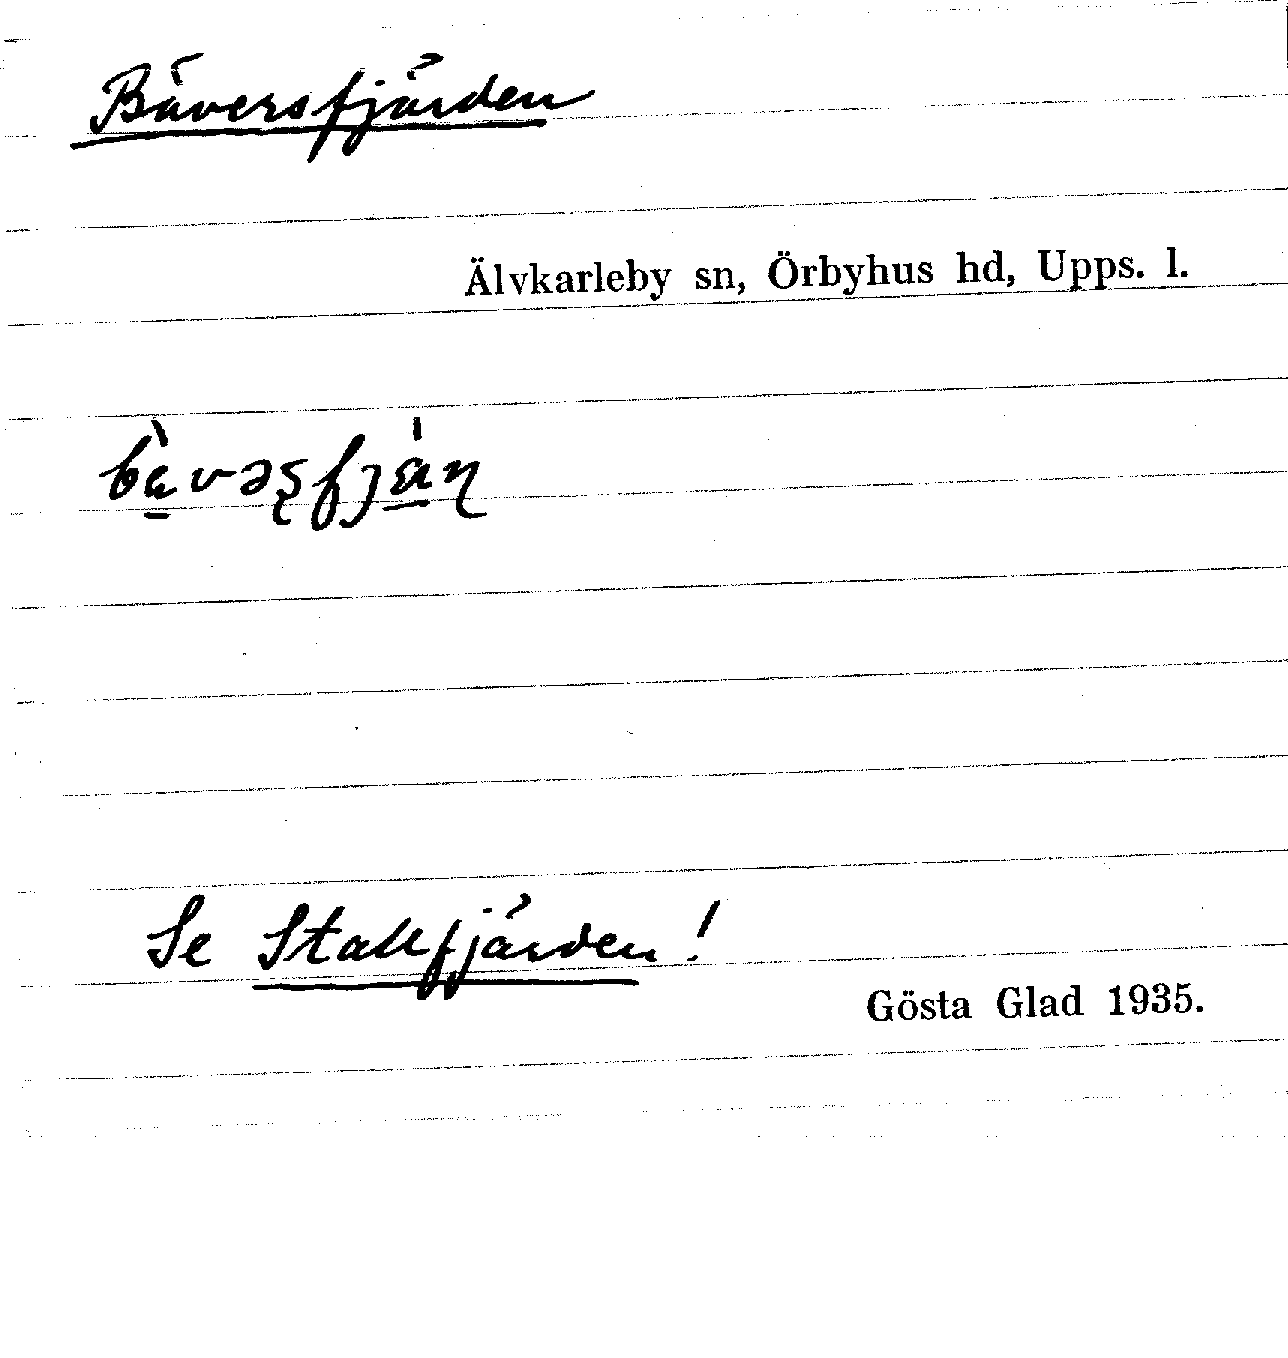 Bäversfjärden
Älvkarleby sn, Örbyhus hd, Upps. l.
Se Stallfjärden!
Gösta Glad 1935.